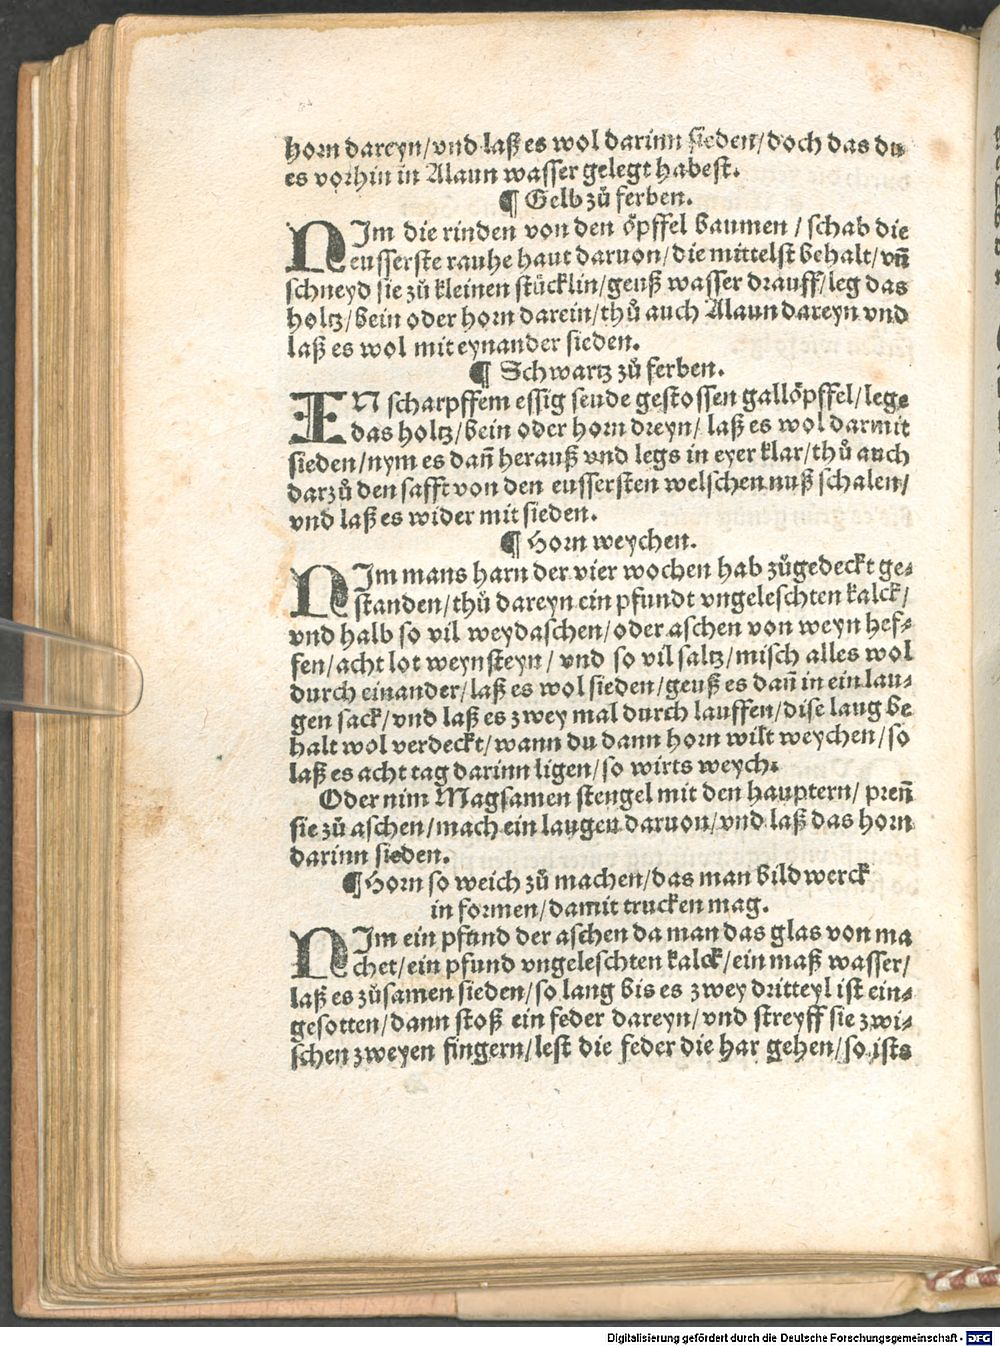 horn dareyn/vnd laß es wol darinn sieden/doch das du
es vorhin in Alaun wasser gelegt habest.
¶ Gelb zů ferben.
NJm die rinden von den öpffel baumen / schab die
eusserste rauhe haut daruon/die mittelst behalt/vn̄
schneyd sie zů kleinen stücklin/geuß wasser drauff/leg das
holtz/bein oder horn darein/thů auch Alaun dareyn vnd
laß es wol mit eynander sieden.
¶ Schwartz zů ferben.
IN scharpffem essig seude gestossen gallöpffel/lege
das holtz/bein oder horn dreyn/ laß es wol darmit
sieden/nym es dan̄ herauß vnd legs in eyer klar/thů auch
darzů den safft von den eussersten welschen nuß schalen/
vnd laß es wider mit sieden.
¶ Horn weychen.
NJm mans harn der vier wochen hab zůgedeckt ge⸗
standen/thů dareyn ein pfundt vngeleschten kalck/
vnd halb so vil weydaschen/oder aschen von weyn hef⸗
fen/acht lot weynsteyn/ vnd so vil saltz/misch alles wol
durch einander/laß es wol sieden/geuß es dan̄ in ein lau⸗
gen sack/vnd laß es zwey mal durch lauffen/dise laug be
halt wol verdeckt/wann du dann horn wilt weychen/so
laß es acht tag darinn ligen/so wirts weych.
Oder nim Magsamen stengel mit den hauptern/ pren̄
sie zů aschen/mach ein laugen daruon/vnd laß das horn
darinn sieden.
¶Horn so weich zů machen/das man bildwerck
in formen/damit trucken mag.
NJm ein pfund der aschen da man das glas von ma
chet/ein pfund vngeleschten kalck/ein maß wasser/
laß es zůsamen sieden/so lang bis es zwey dritteyl ist ein⸗
gesotten/dann stoß ein feder dareyn/vnd streyff sie zwi⸗
schen zweyen fingern/lest die feder die har gehen/so ists
Digitalisierung gefördert durch die Deutsche Forschungsgemeinschaft - DFG